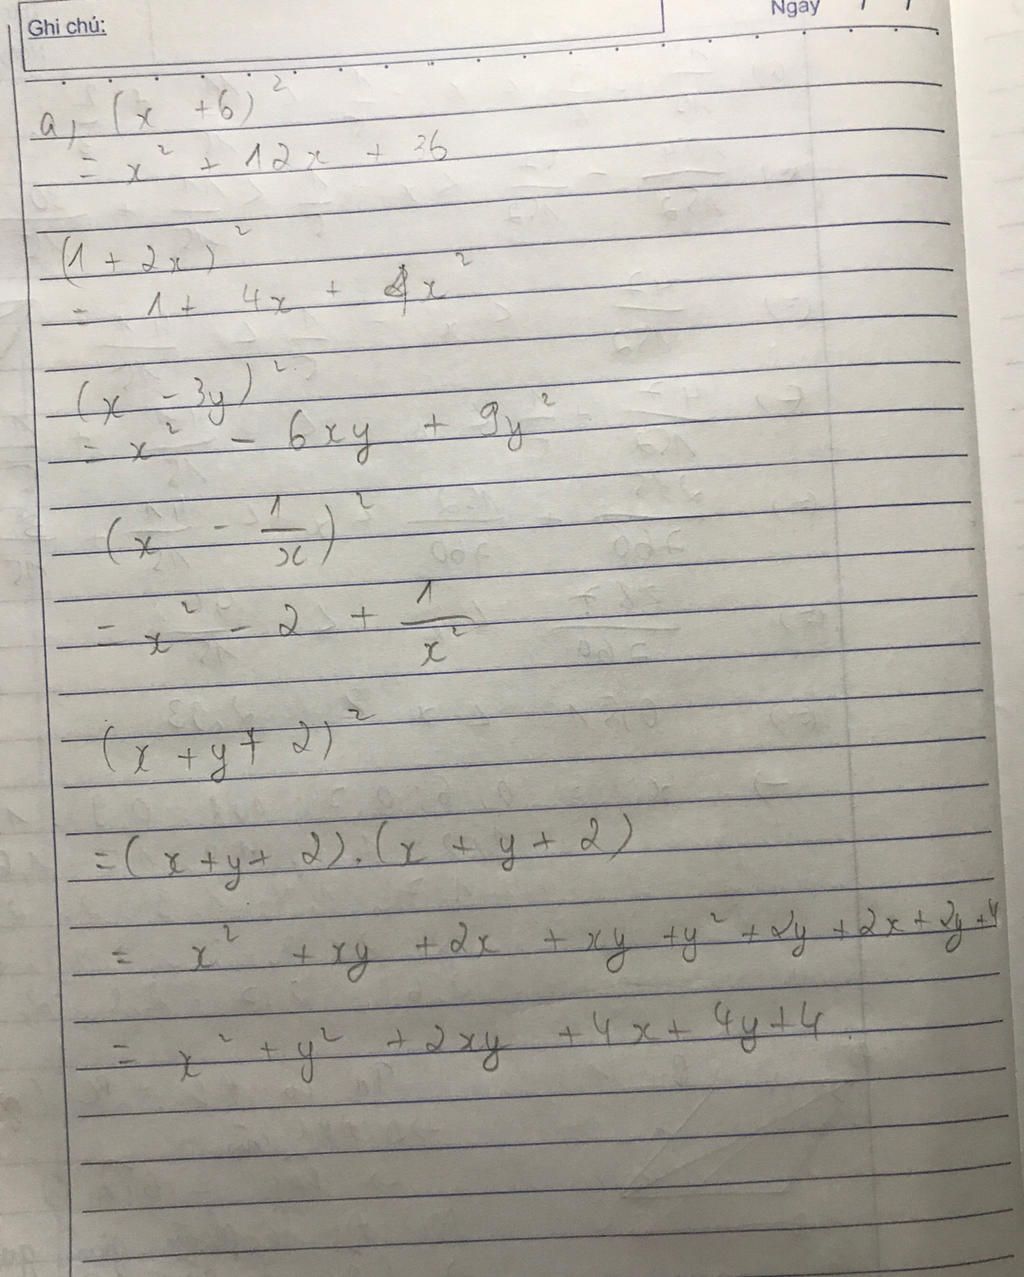 Ghi chú:
Ngày / /
a, (x + 6)²
= x² + 12x + 36
(1 + 2x)²
= 1 + 4x + 4x²
(x - 3y)²
= x² - 6xy + 9y²
(x - 1/x)²
= x² - 2 + 1/x²
(x + y + 2)²
= (x + y + 2) . (x + y + 2)
= x² + xy + 2x + xy + y² + 2y + 2x + 2y + 4
= x² + y² + 2xy + 4x + 4y + 4